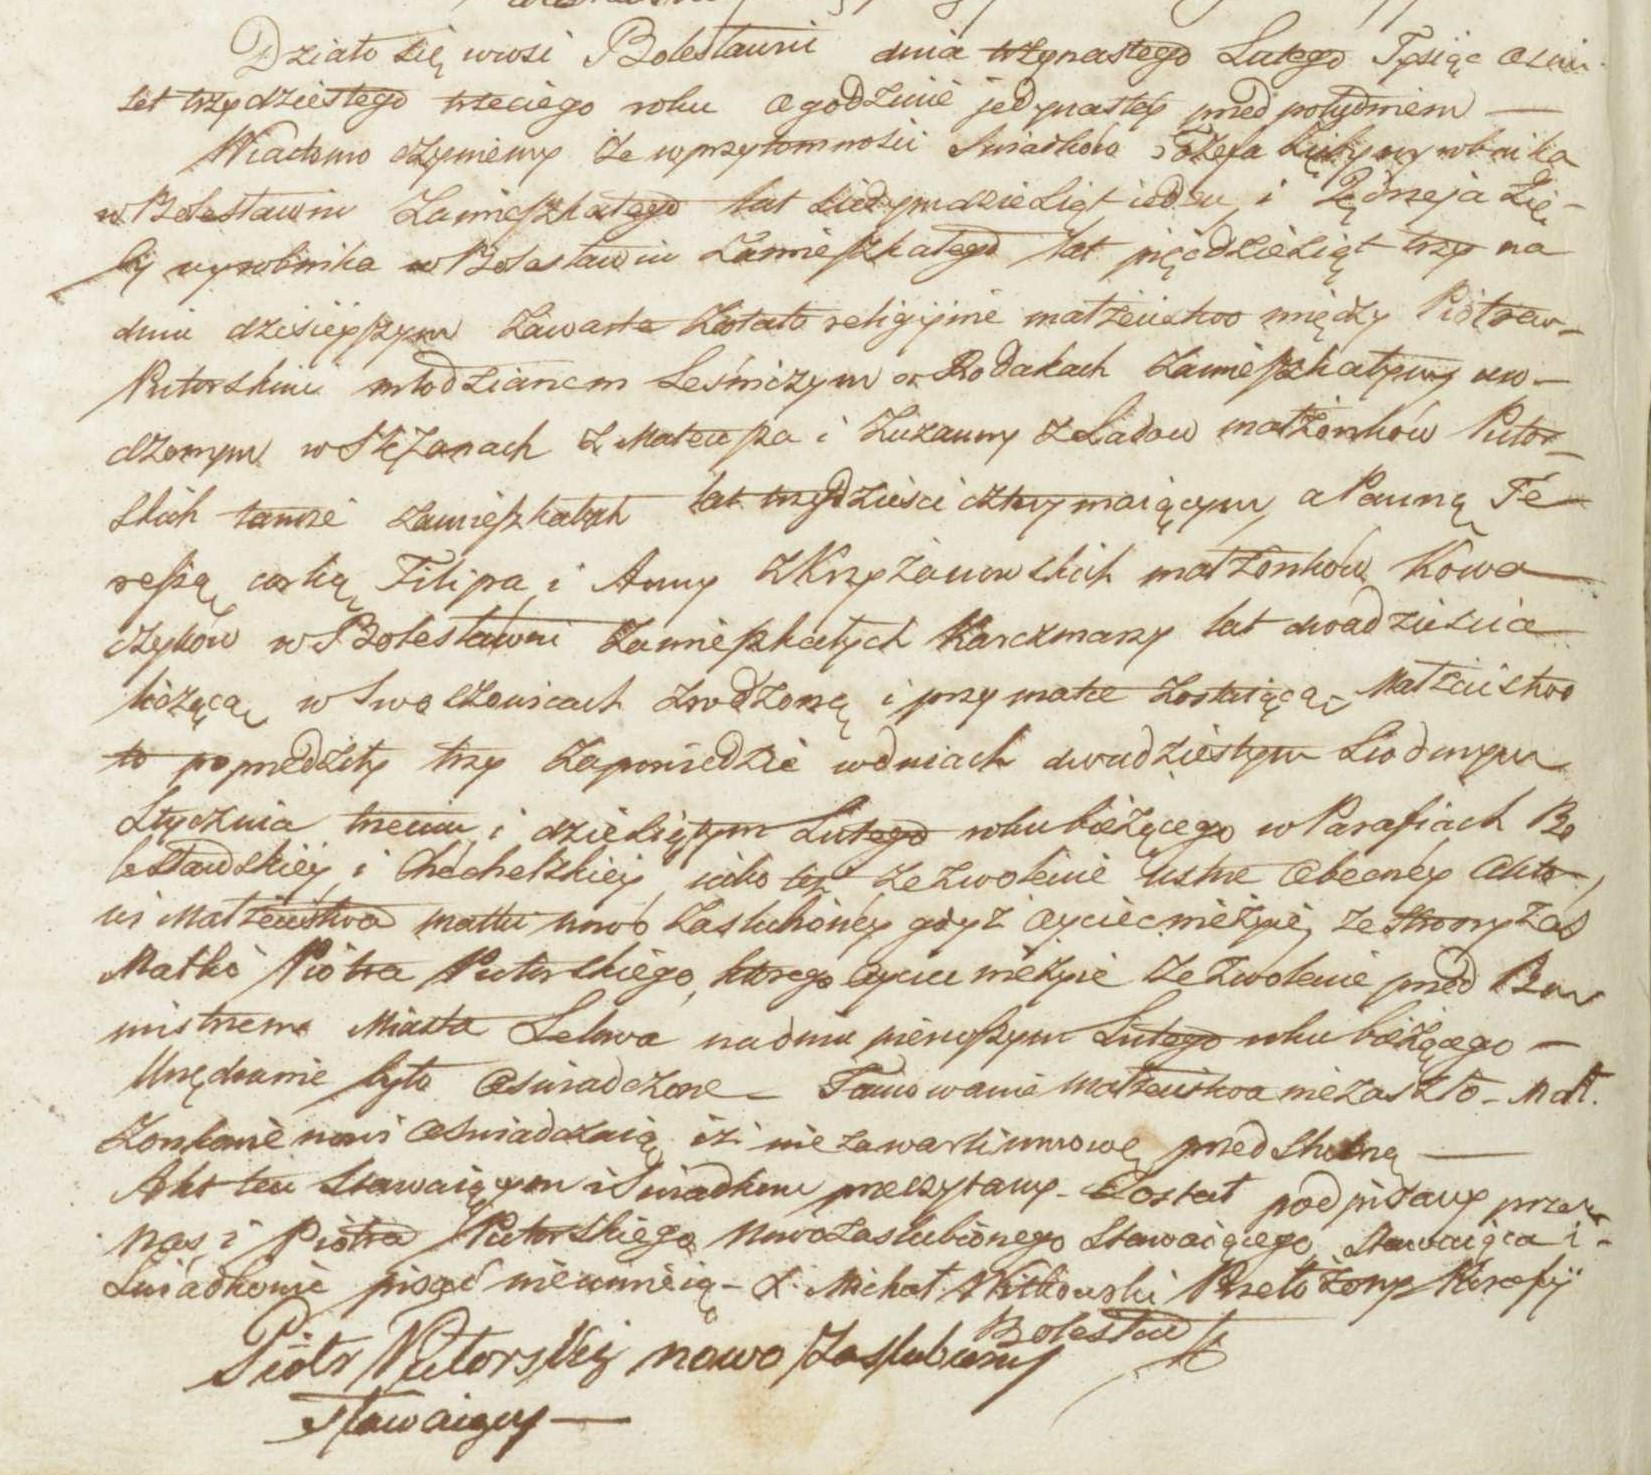 Działo się wwsi Bolesławiu dnia trzynastego Lutego Tysiąc osm
set trzydziestego trzeciego roku o godzinie jedynastey przed południem —
Wiadomo czyniemy że w przytomności Świadków Józefa Zięby wyrobnika
w Bolesławiu Zamieszkałego lat siedymdziesiąt ieden, i Jędrzeja Zię-
by wyrobnika w Bolesławiu Zamieszkałego lat pięćdziesiąt trzy na
dniu dzisieyszym Zawarte Zostało religiyine małżeństwo między Piotrem-
Putorskim młodzianem Leśniczym w Rodakach Zamieszkałym uro-
dzonym w Stężanach z Mateusza i Zuzanny z Ladow małżonków Putor-
skich tamże zamieszkałych lat trzydzieści cztery maiącym, a Panną Te-
ressą corką Filipa i Anny z Krzyżanowskich małżonków Kowa
czyków w Bolesławiu Zamieszkałych Karczmarzy lat dwadzieścia
liczącą, w Swoszowicach zrodzoną i przy matce zostaiącą, Małżeństwo
to poprzedziły trzy Zapowiedzie wdniach dwudziestym Siodmym
Stycznia trzecim, i dziesiątym Lutego roku bieżącego w Parafiach Bo
lesławskiey i Chechelskiey, iako też zezwolenie ustne obecney Akto-
wi Małżeństwa matki nowo Zaslubioney gdyż oyciec nieżyie, ze strony zaś
Matki Piotra Putorskiego, ktorego oyciec nieżyie zezwolenie przed Bur
mistrzem Miasta Lelowa nadniu pierwszym Lutego roku bieżącego —
Urzędownie było oświadczone – Tamowanie małżeństwa niezaszło – Mał.
żonkowie nowi oświadczaią iż nie zawarli umowę przedślubną —
Akt ten Stawaiącym i Świadkom przeczytany – Został podpisany przez
Nas, i Piotra Putorskiego Nowozaslubionego Stawaiącego, Stawaiąca i -
Świadkowie pisać nieumieią – X. Michał Witkowski Przełożony Parafij
Bolesław
Piotr Putorskij nowo Zaslubiony
Stawaiący —